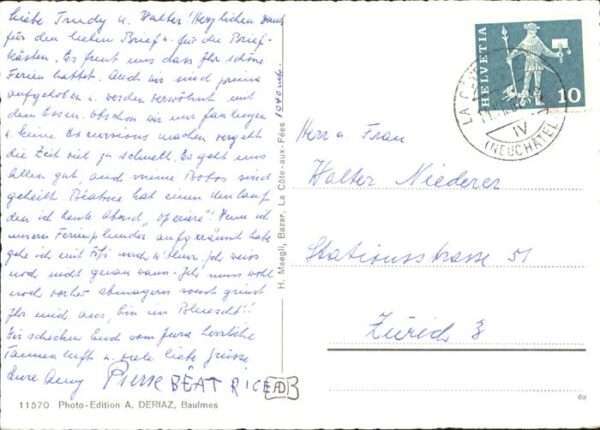 Liebe Trudy u. Walter! Herzlichen Dank
für den lieben Brief u. für die Brief-
kästen. Es freut uns dass Ihr schöne
Ferien hattet. Auch wir sind prima
aufgehoben u. werden verwöhnt mit
dem Essen. Obschon wir uns
u keine Excursions machen vergeht
die Zeit viel zu schnell. Es geht uns
allen gut und meine Bobos sind
geheilt. Béatrice hat einen
den ich heute Abend Wenn ich
unseren Ferienplunder aufgeräumt habe
gehe ich mit Fifi nach Ich weiss
noch nicht genau wann. Ich muss wohl
noch vorher abmagern sonst grinst
Ihr mich aus, bin im
Wir schicken Euch vom Jura herrliche
Tannenluft u. viele liebe Grüsse
Eure Pierre BÉATRICE
1040 m
H. Maegli, Bazar, La Côte-aux-Fées
11570 Photo-Edition A. DERIAZ, Baulmes
HELVETIA
10
IV
(NEUCHÂTEL)
Herr u Frau
Walter Niederer
Stationsstrasse 51
Zürich 3